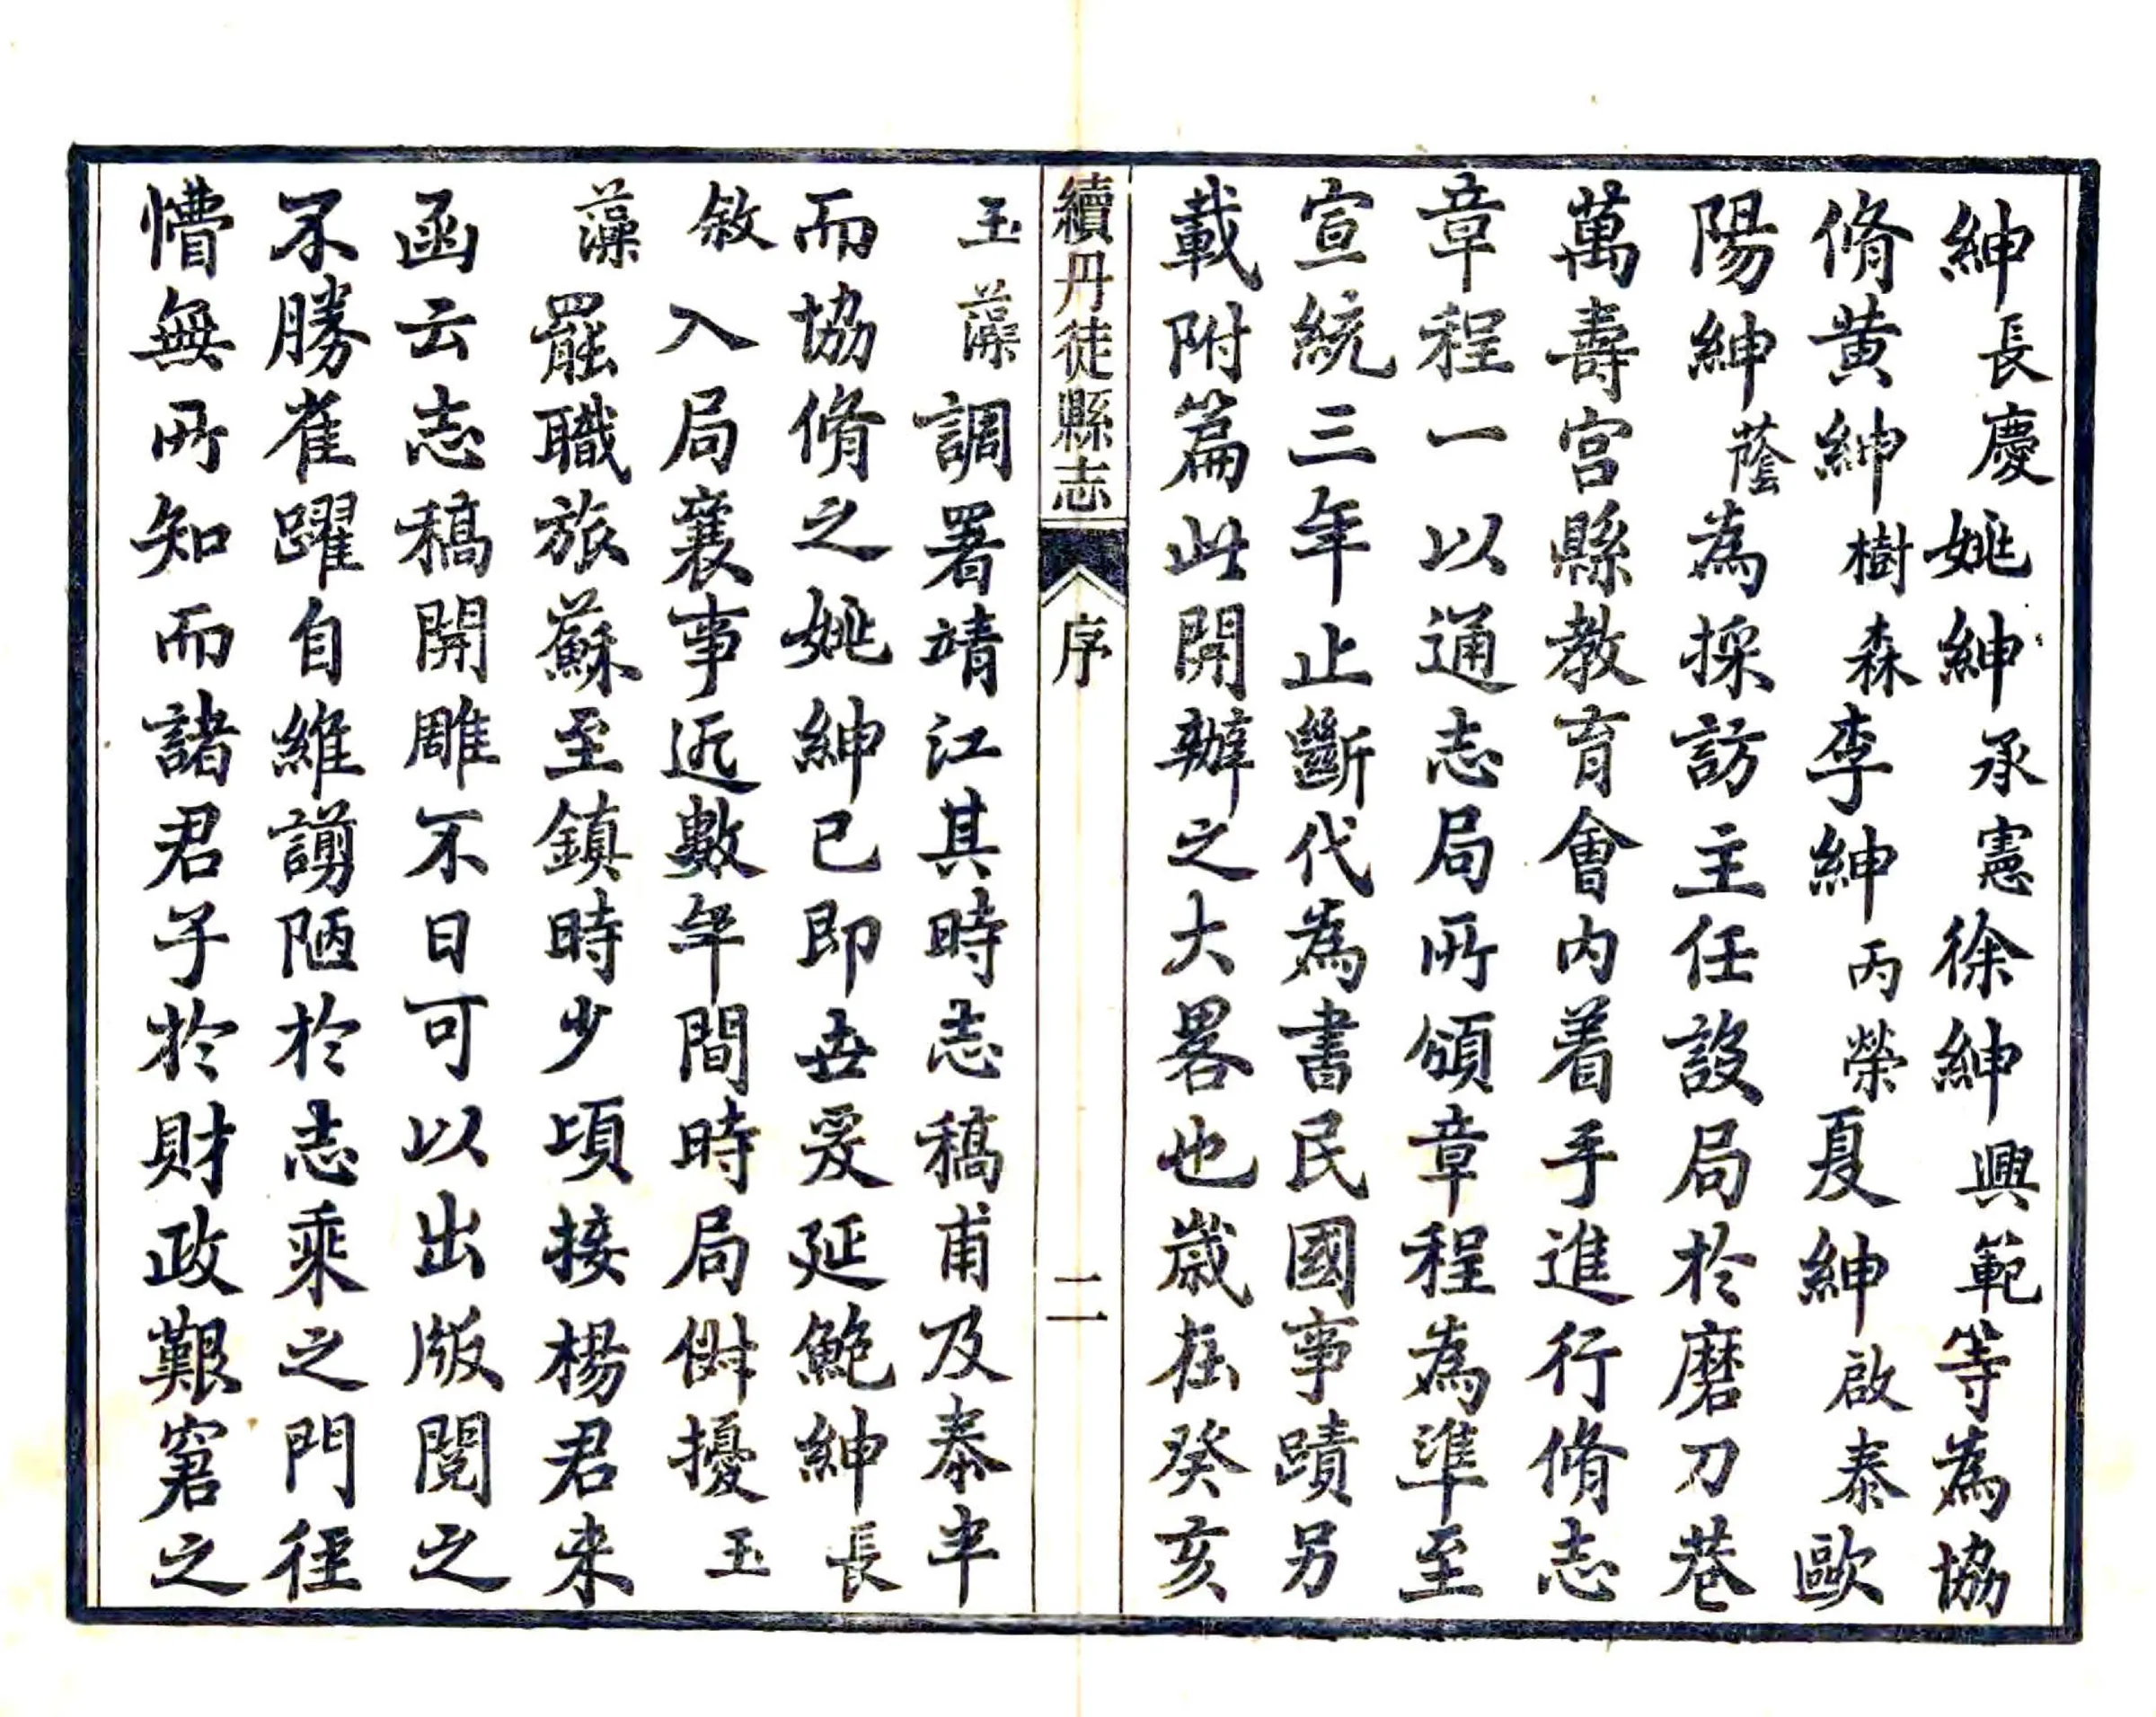 紳長慶姚紳承憲徐紳興範等為協
脩黃紳樹森李紳丙榮夏紳啟泰歐
陽紳蔭為採訪主任設局於磨刀巷
萬壽宮縣教育會內着手進行脩志
章程一以通志局所頒章程為準至
宣統三年止斷代為書民國事蹟另
載附篇此開辦之大畧也歲在癸亥
續丹徒縣志 序 二
玉藻調署靖江其時志稿甫及泰半
而協脩之姚紳已即世爰延鮑紳長
敘入局襄事近數年間時局俶擾玉
藻罷職旅蘇至鎮時少頃接楊君來
函云志稿開雕不日可以出版閱之
不勝雀躍自維謭陋於志乘之門徑
懵無所知而諸君子於財政艱窘之